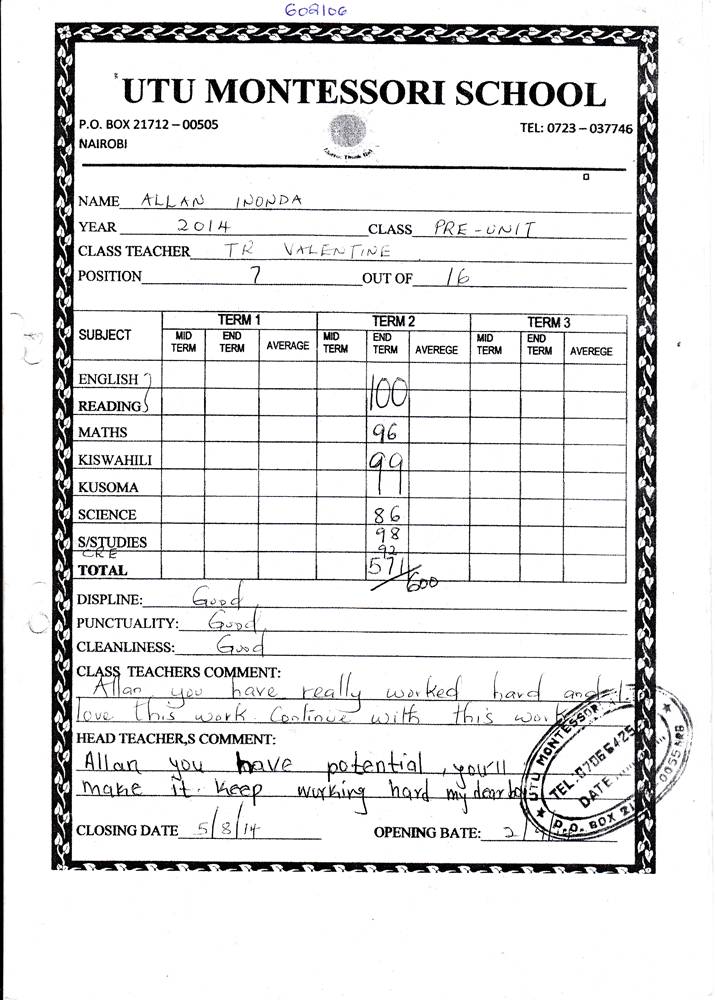 602106
UTU MONTESSORI SCHOOL
P.O. BOX 21712 – 00505
TEL: 0723 – 037746
NAIROBI
NAME ALLAN INONDA
YEAR 2014 CLASS PRE-UNIT
CLASS TEACHER TR VALENTINE
POSITION 7 OUT OF 16
SUBJECT TERM 1 TERM 2 TERM 3
MID TERM END TERM AVERAGE MID TERM END TERM AVEREGE MID TERM END TERM AVEREGE
ENGLISH
READING 100
MATHS 96
KISWAHILI 99
KUSOMA
SCIENCE 86
S/STUDIES 98
CRE 92
TOTAL 571/600
DISPLINE: Good
PUNCTUALITY: Good
CLEANLINESS: Good
CLASS TEACHERS COMMENT:
Allan you have really worked hard and I
love this work. Continue with this work
HEAD TEACHER,S COMMENT:
Allan you have potential, you'll
make it. Keep working hard my dear boy
CLOSING DATE 5/8/14 OPENING BATE: 2/9/14
UTU MONTESSORI
TEL: 0706 6425
DATE
P.O. BOX 21